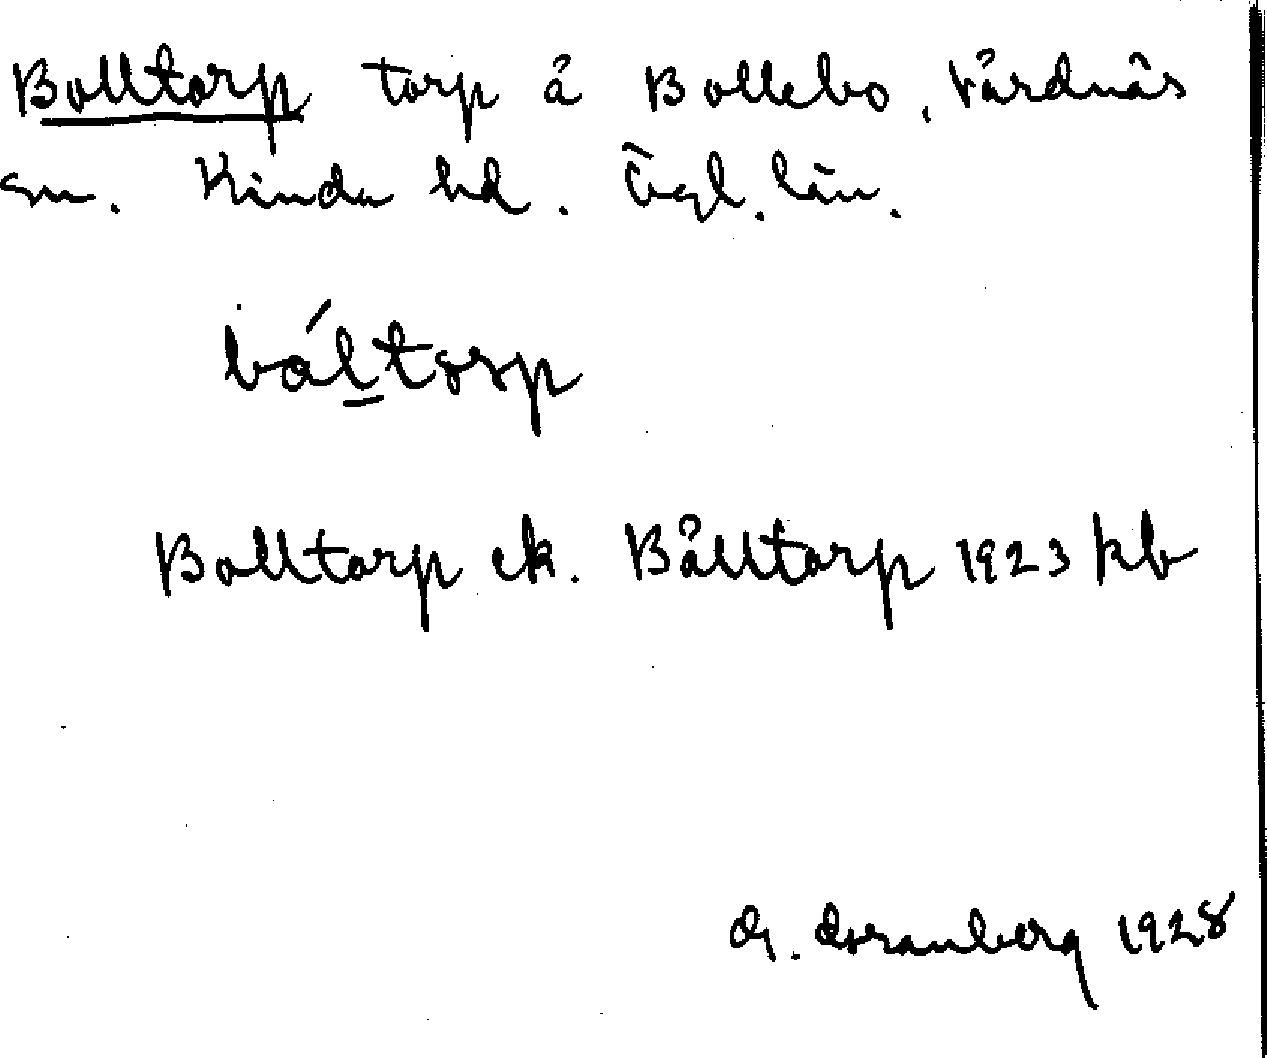 Bolltorp torp å Bollebo, Vårdnäs
sn. Kinda hd. Ögl. län.
bóltorp
Bolltorp ek. Bålltorp 1923 kb
G. Granberg 1928